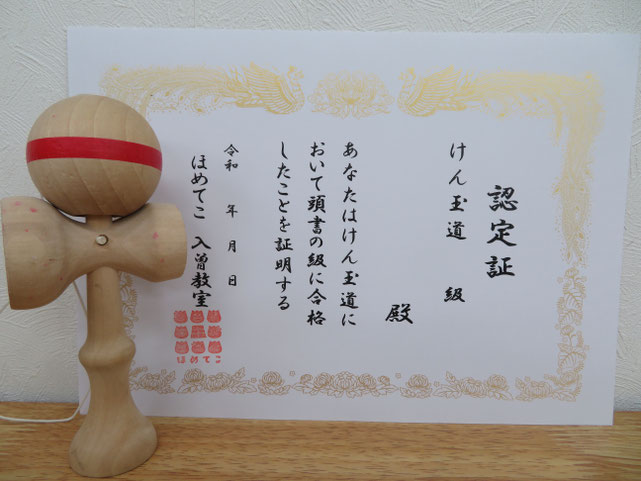 認定証
けん玉道 級
殿
あなたはけん玉道に
おいて頭書の級に合格
したことを証明する
令和 年 月 日
ほめてこ 入曽教室
ほめてこ